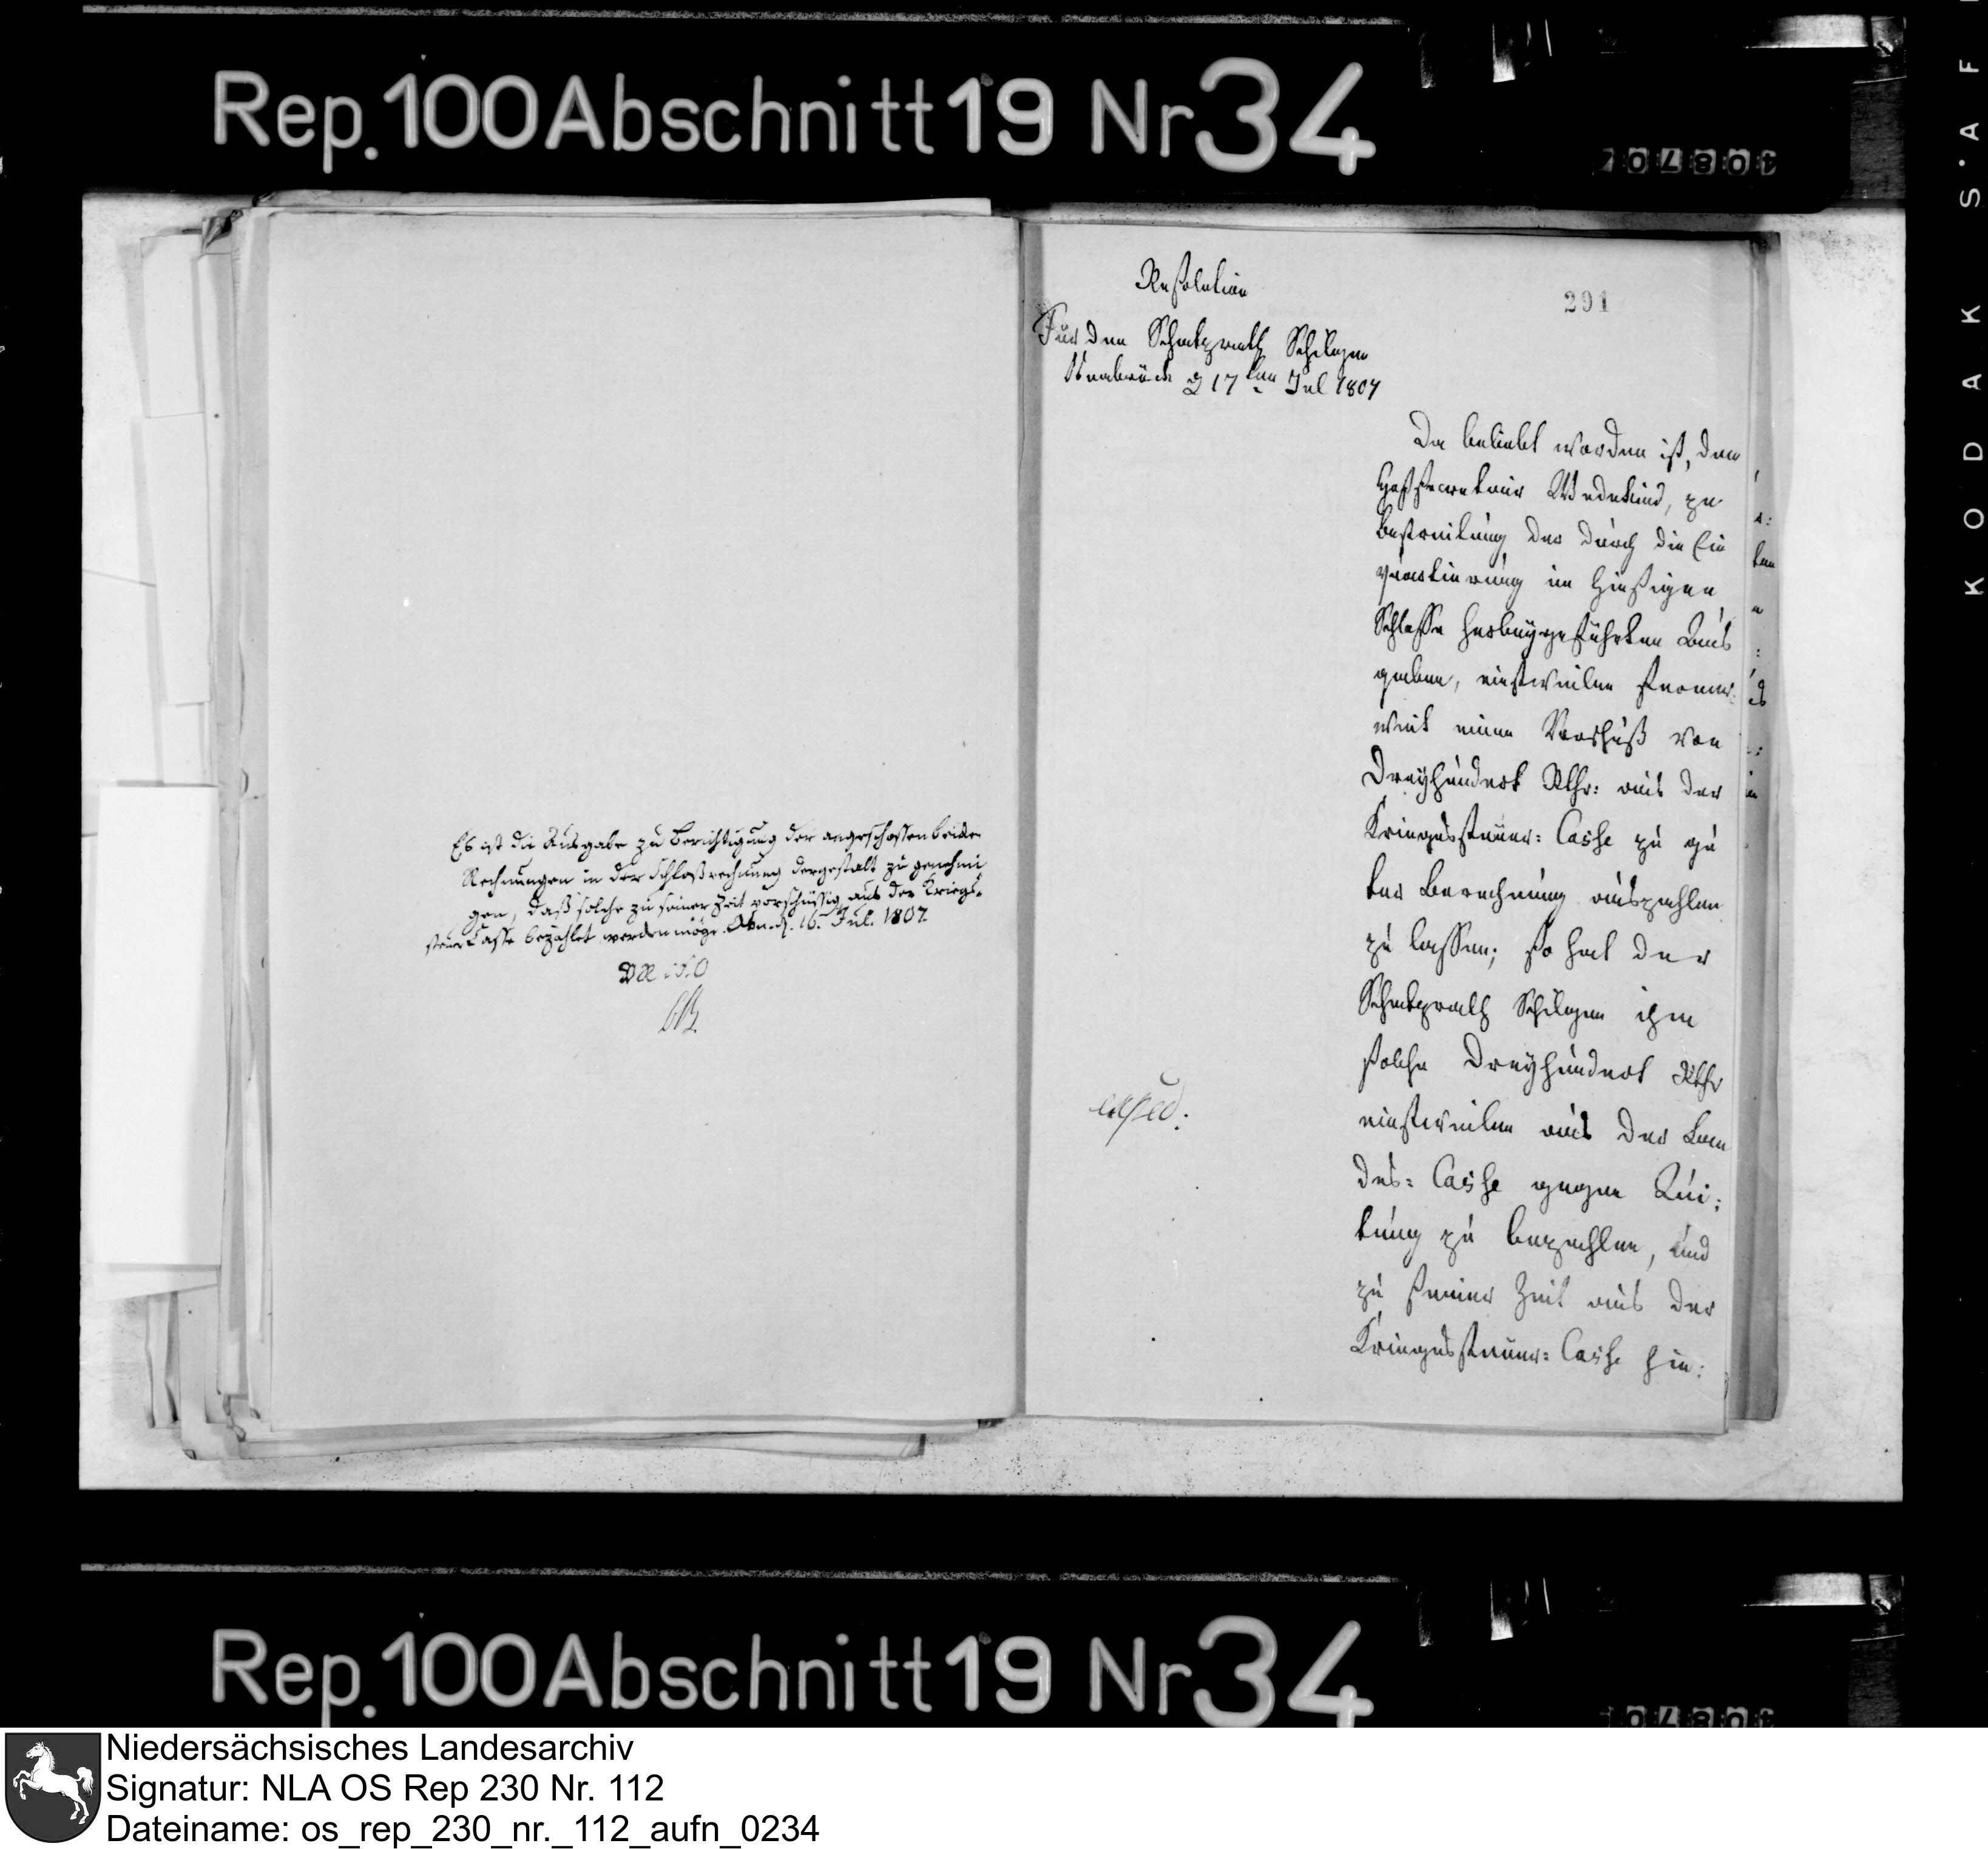 Rep. 100 Abschnitt 19 Nr 34
Es ist die Ausgabe zu Berichtigung der angeschossen beiden
Rechnungen in der Schloßrechnung dergestalt zu genehmi
gen, daß solche zu seiner Zeit vorschüssig aus der Kriegs-
steuer Casse bezahlet werden möge. 16. Jul. 1807.
291
Resolution
Für den Schatzrath Schilgen
Osnabrück d 17ten Jul 1807
Da beliebt worden ist, dem
Hofsecretair Wedekind, zu
Bestreitung der durch die Ein
quartierung im hiesigen
Schlosse herbeygeführten Aus
gaben, einstweilen ferner
weit einen Vorschuß von
Dreyhundert Rthr: aus der
Kriegessteuer: Casse zu gu
ter Berechnung auszahlen
zu lassen; so hat der
Schatzrath Schilgen ihm
solche Dreyhundert Rthr
einstweilen aus der Lan
des: Casse gegen Qui:
tung zu bezahlen, und
zu seiner Zeit aus der
Kriegessteuer: Casse hin:
exped:
Rep. 100 Abschnitt 19 Nr 34
KODAK S.AF
Niedersächsisches Landesarchiv
Signatur: NLA OS Rep 230 Nr. 112
Dateiname: os_rep_230_nr._112_aufn_0234